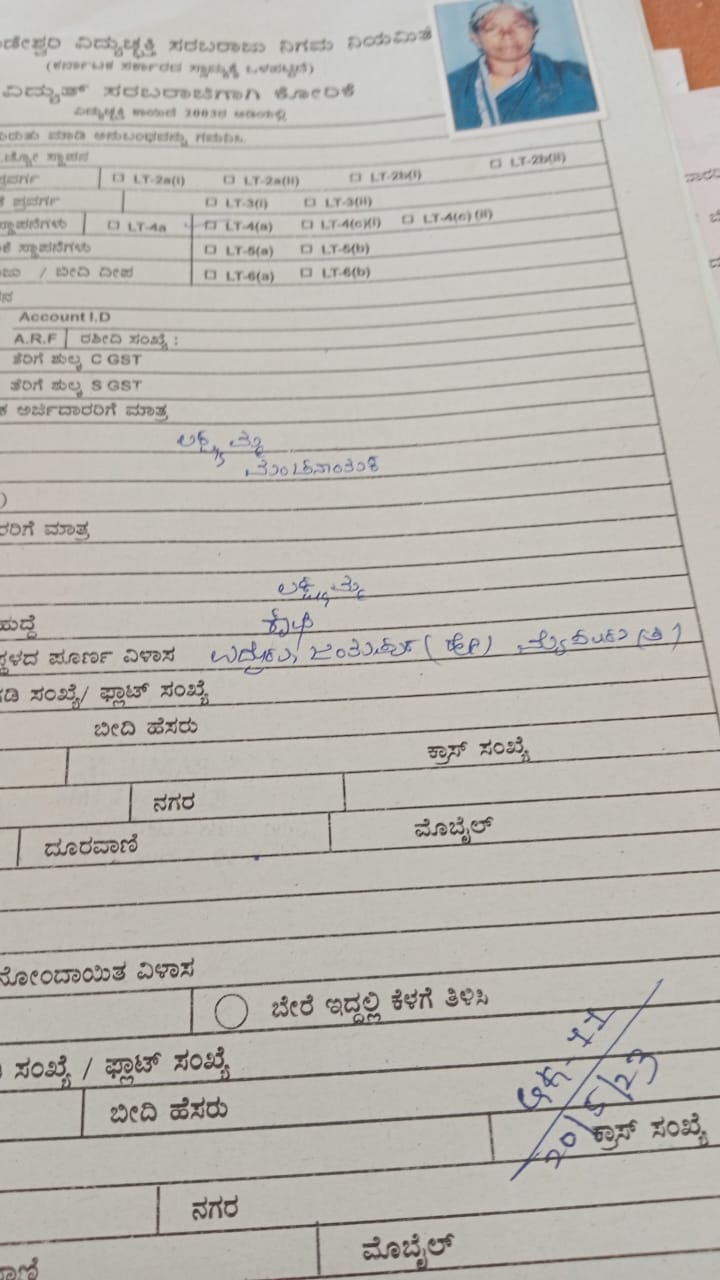 ಡೇಶ್ವರಿ ವಿದ್ಯುಚ್ಛಕ್ತಿ ಸರಬರಾಜು ನಿಗಮ ನಿಯಮಿತ
(ಕರ್ನಾಟಕ ಸರ್ಕಾರದ ಸ್ವಾಮ್ಯಕ್ಕೆ ಒಳಪಟ್ಟಿದೆ)
ವಿದ್ಯುತ್ ಸರಬರಾಜಿಗಾಗಿ ಕೋರಿಕೆ
ವಿದ್ಯುಚ್ಛಕ್ತಿ ಕಾಯಿದೆ 2003ರ ಅಡಿಯಲ್ಲಿ
ಮಾಡಿ ಅನುಬಂಧವನ್ನು ಗಮನಿಸಿ.
ಸ್ಥಾಪನ
ಪ್ರವರ್ಗ □ LT-2a(i) □ LT-2a(ii) □ LT-2b(i) □ LT-2b(ii)
ಪ್ರವರ್ಗ □ LT-3(i) □ LT-3(ii)
ಸ್ಥಾಪನೆಗಳು □ LT-4a □ LT-4(a) □ LT-4(c)(i) □ LT-4(c)(ii)
ಕೆ ಸ್ಥಾಪನೆಗಳು □ LT-5(a) □ LT-5(b)
/ ಬೀದಿ ದೀಪ □ LT-6(a) □ LT-6(b)
Account I.D
A.R.F ರಶೀದಿ ಸಂಖ್ಯೆ :
ತೆರಿಗೆ ಶುಲ್ಕ C GST
ತೆರಿಗೆ ಶುಲ್ಕ S GST
ಕ ಅರ್ಜಿದಾರರಿಗೆ ಮಾತ್ರ
ಲಕ್ಷ್ಮಮ್ಮ
)
ರರಿಗೆ ಮಾತ್ರ
ಲಕ್ಷ್ಮಮ್ಮ
ಹುದ್ದೆ ಕೃಷಿ
ಸ್ಥಳದ ಪೂರ್ಣ ವಿಳಾಸ
ಗಡಿ ಸಂಖ್ಯೆ/ ಫ್ಲಾಟ್ ಸಂಖ್ಯೆ
ಬೀದಿ ಹೆಸರು
ಕ್ರಾಸ್ ಸಂಖ್ಯೆ
ನಗರ
ದೂರವಾಣಿ ಮೊಬೈಲ್
ನೋಂದಾಯಿತ ವಿಳಾಸ
ಬೇರೆ ಇದ್ದಲ್ಲಿ ಕೆಳಗೆ ತಿಳಿಸಿ
ಸಂಖ್ಯೆ / ಫ್ಲಾಟ್ ಸಂಖ್ಯೆ
ಬೀದಿ ಹೆಸರು
20/5/23
ಕ್ರಾಸ್ ಸಂಖ್ಯೆ
ನಗರ
ವಾಣಿ ಮೊಬೈಲ್